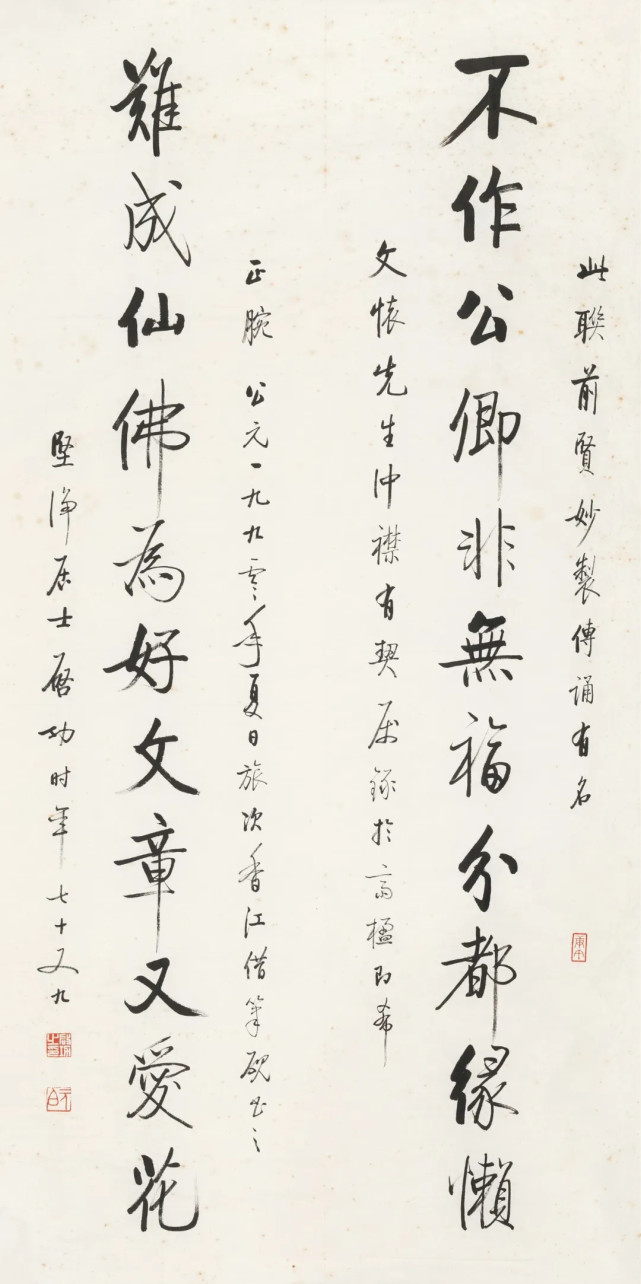 此聯前賢妙製傳誦有名
不作公卿非無福分都緣懶
文懷先生沖襟有契屬錄於高楹即希
正腕 公元一九九零年夏日旅次香江借筆硯書之
難成仙佛為好文章又愛花
堅淨居士啓功时年七十又九